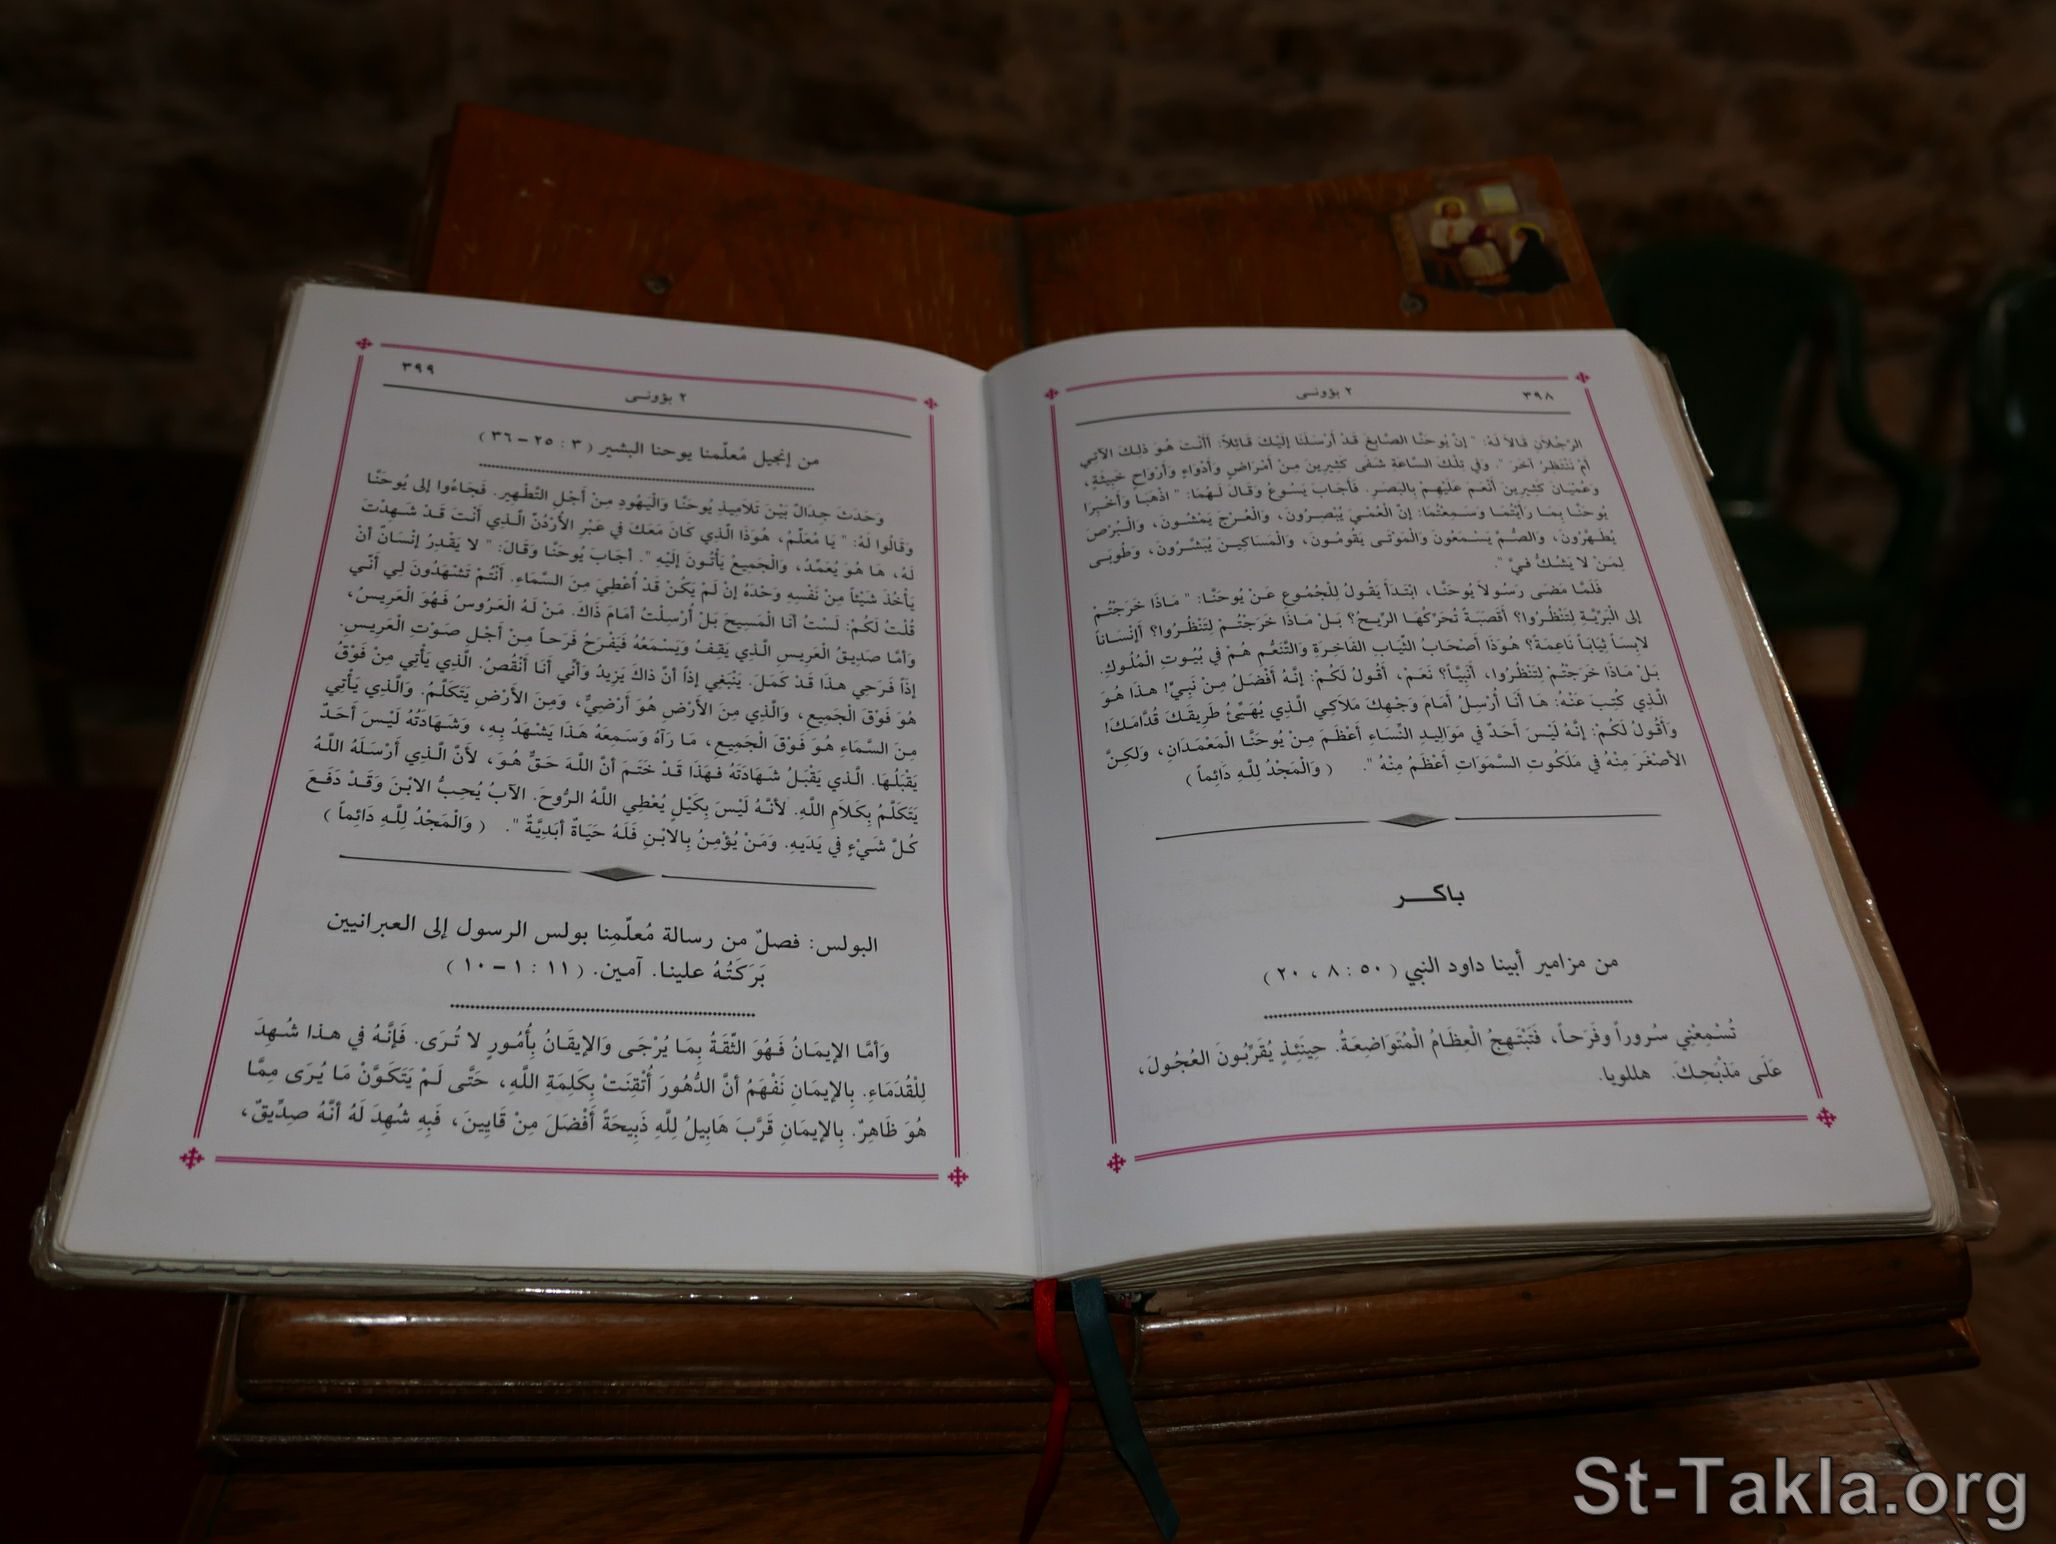 ٣٩٨
٢ بؤونـى
الرَّجُلاَنِ قَالاَ لَهُ: " إنَّ يُوحَنَّا الصَّابِغَ قَدْ أرْسَلَنَا إلَيْكَ قَائِلاً: أَأَنْتَ هُوَ ذلِكَ الآتِي
أمْ نَنْتَظِرُ آخَرَ ". وَفِي تِلْكَ السَّاعَةِ شَفَى كَثِيرِينَ مِنْ أمْرَاضٍ وَأدْوَاءٍ وَأرْوَاحٍ خَبِيثَةٍ،
وَعُمْيَانٌ كَثِيرِينَ أنْعَمَ عَلَيْهِمْ بِالبَصَرِ. فَأجَابَ يَسُوعُ وَقَالَ لَهُمَا: " اذْهَبَا وَأخْبِرَا
يُوحَنَّا بِمَا رَأيْتُمَا وَسَمِعْتُمَا: إنَّ الْعُمْيَ يُبْصِرُونَ، وَالْعُرْجَ يَمْشُونَ، وَالْبُرْصَ
يُطَهَّرُونَ، وَالصُّمَّ يَسْمَعُونَ وَالْمَوْتَى يَقُومُونَ، وَالْمَسَاكِينَ يُبَشَّرُونَ، وَطُوبَى
لِمَنْ لاَ يَشُكُّ فيَّ ".
فَلَمَّا مَضَى رَسُولاَ يُوحَنَّا، ابْتَدَأَ يَقُولُ لِلْجُمُوعِ عَنْ يُوحَنَّا: " مَاذَا خَرَجْتُمْ
إلى الْبَرِّيَّةِ لِتَنْظُرُوا؟ أقَصَبَةً تُحَرِّكُهَا الرِّيحُ؟ بَلْ مَاذَا خَرَجْتُمْ لِتَنْظُرُوا؟ أَإنْسَاناً
لاَبِساً ثِيَاباً نَاعِمَةً؟ هُوَذَا أصْحَابُ الثِّيَابِ الفَاخِرَةِ وَالتَّنَعُّمِ هُمْ فِي بُيُوتِ الْمُلُوكِ.
بَلْ مَاذَا خَرَجْتُمْ لِتَنْظُرُوا، أنَبِيًّا؟ نَعَمْ، أقُولُ لَكُمْ: إنَّهُ أفْضَلُ مِنْ نَبيٍّ! هذَا هُوَ
الَّذِي كُتِبَ عَنْهُ: هَا أنَا أُرْسِلُ أمَامَ وَجْهِكَ مَلاَكِي الَّذِي يُهَيِّئُ طَرِيقَكَ قُدَّامَكَ!
وَأقُولُ لَكُمْ: إنَّهُ لَيْسَ أحَدٌ فِي مَوَالِيدِ النِّسَاءِ أعْظَمَ مِنْ يُوحَنَّا الْمَعْمَدَانِ، وَلكِنَّ
الأصْغَرَ مِنْهُ فِي مَلَكُوتِ السَّمَوَاتِ أعْظَمُ مِنْهُ ". ( وَالْمَجْدُ لِلَّهِ دَائِماً )
باكـــر
من مزامير أبينا داود النبي ( ٥٠ : ٨ ، ٢٠ )
تُسْمِعُنِي سُروراً وفَرَحاً، فَتَبْتَهِجُ الْعِظَامُ الْمُتَوَاضِعَةُ. حِينَئِذٍ يُقَرِّبُونَ العُجُولَ،
عَلَى مَذْبَحِكَ. هللويا.
٣٩٩
٢ بؤونـى
من إنجيل مُعلّمنا يوحنا البشير ( ٣ : ٢٥ – ٣٦ )
وَحَدَثَ جِدَالٌ بَيْنَ تَلاَمِيذِ يُوحَنَّا وَالْيَهُودِ مِنْ أجْلِ التَّطْهِيرِ. فَجَاءُوا إلى يُوحَنَّا
وَقَالُوا لَهُ: " يَا مُعَلِّمُ، هُوَذَا الَّذِي كَانَ مَعَكَ فِي عَبْرِ الأُرْدُنِّ الَّذِي أنْتَ قَدْ شَهِدْتَ
لَهُ، هَا هُوَ يُعَمِّدُ، وَالْجَمِيعُ يَأْتُونَ إلَيْهِ ". أجَابَ يُوحَنَّا وَقَالَ: " لاَ يَقْدِرُ إنْسَانٌ أنْ
يَأْخُذَ شَيْئاً مِنْ نَفْسِهِ وَحْدَهُ إنْ لَمْ يَكُنْ قَدْ أُعْطِيَ مِنَ السَّمَاءِ. أنْتُمْ تَشْهَدُونَ لِي أنِّي
قُلْتُ لَكُمْ: لَسْتُ أنَا الْمَسِيحَ بَلْ أُرْسِلْتُ أمَامَ ذَاكَ. مَنْ لَهُ الْعَرُوسُ فَهُوَ الْعَرِيسُ،
وَأمَّا صَدِيقُ الْعَرِيسِ الَّذِي يَقِفُ وَيَسْمَعُهُ فَيَفْرَحُ فَرَحاً مِنْ أجْلِ صَوْتِ الْعَرِيسِ.
إذَاً فَرَحِي هذَا قَدْ كَمَلَ. يَنْبَغِي إذَاً أنَّ ذَاكَ يَزِيدُ وَأنِّي أنَا أنْقُصُ. الَّذِي يَأْتِي مِنْ فَوْقُ
هُوَ فَوْقَ الْجَمِيعِ، وَالَّذِي مِنَ الأَرْضِ هُوَ أرْضِيٌّ، وَمِنَ الأَرْضِ يَتَكَلَّمُ. وَالَّذِي يَأْتِي
مِنَ السَّمَاءِ هُوَ فَوْقَ الْجَمِيعِ، مَا رَآهُ وَسَمِعَهُ هَذَا يَشْهَدُ بِهِ، وَشَهَادَتُهُ لَيْسَ أَحَدٌ
يَقْبَلُهَا. الَّذي يَقْبَلُ شَهَادَتَهُ فَهَذَا قَدْ خَتَمَ أنَّ اللَّهَ حَقٌّ هُوَ، لأَنَّ الَّذِي أَرْسَلَهُ اللَّهُ
يَتَكَلَّمُ بِكَلاَمِ اللَّهِ. لأَنَّهُ لَيْسَ بِكَيْلٍ يُعْطِي اللَّهُ الرُّوحَ. الآبُ يُحِبُّ الابْنَ وَقَدْ دَفَعَ
كُلَّ شَيْءٍ فِي يَدَيهِ. وَمَنْ يُؤْمِنُ بِالابْنِ فَلَهُ حَيَاةٌ أبَدِيَّةٌ ". ( وَالْمَجْدُ لِلَّهِ دَائِماً )
البولس: فصلٌ من رسالة مُعلّمِنا بولس الرسول إلى العبرانيين
بَرَكَتُهُ علينا. آمين. ( ١١ : ١ – ١٠ )
وَأمَّا الإيمَانُ فَهُوَ الثِّقَةُ بِمَا يُرْجَى وَالإيقَانُ بِأُمُورٍ لا تُرَى. فَإنَّهُ في هذا شُهِدَ
لِلْقُدَمَاءِ. بِالإيمَانِ نَفْهَمُ أنَّ الدُّهُورَ أُتْقِنَتْ بِكَلِمَةِ اللَّهِ، حَتَّى لَمْ يَتَكَوَّنْ مَا يُرَى مِمَّا
هُوَ ظَاهِرٌ. بِالإيمَانِ قَرَّبَ هَابِيلُ لِلَّهِ ذَبِيحَةً أَفْضَلَ مِنْ قَايِينَ، فَبِهِ شُهِدَ لَهُ أنَّهُ صِدِّيقٌ،
St-Takla.org